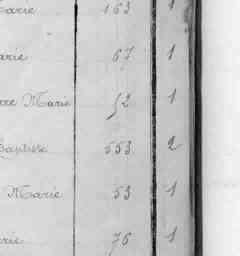 Marie 163 1
Marie 67 1
rre Marie 52 1
Baptiste 553 2
Marie 53 1
arie 76 1